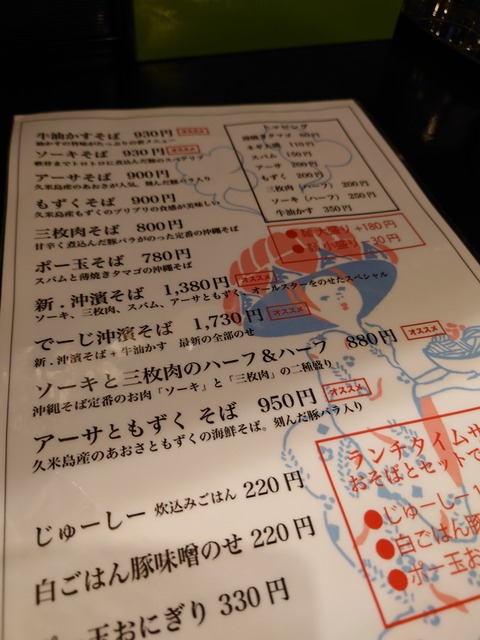 牛油かすそば 930円 オススメ
油かすの旨味がたっぷりの新メニュー
ソーキそば 930円 オススメ
軟骨までトロトロに煮込んだ豚のスペアリブ
アーサそば 900円
久米島産のあおさが人気。刻んだ豚バラ入り
もずくそば 900円
久米島産もずくのプリプリの食感が美味しい
三枚肉そば 800円
甘辛く煮込んだ豚バラがのった定番の沖縄そば
ポー玉そば 780円
スパムと薄焼きタマゴの沖縄そば
新.沖濱そば 1,380円 オススメ
ソーキ、三枚肉、スパム、アーサともずく、オールスターをのせたスペシャル
でーじ沖濱そば 1,730円 オススメ
新.沖濱そば+牛油かす 最新の全部のせ
ソーキと三枚肉のハーフ&ハーフ 880円 オススメ
沖縄そば定番のお肉「ソーキ」と「三枚肉」の二種盛り
アーサともずく そば 950円 オススメ
久米島産のあおさともずくの海鮮そば。刻んだ豚バラ入り
じゅーしー 炊込みごはん 220円
白ごはん豚味噌のせ 220円
ポー玉おにぎり 330円
トッピング
薄焼きタマゴ
110円
スパム 150円
アーサ 200円
もずく 200円
三枚肉(ハーフ) 200円
ソーキ(ハーフ) 250円
牛油かす 350円
大盛り +180円
小盛り 30円
ランチタイムサ
おそばとセットで
じゅーしー
白ごはん豚
ポー玉お